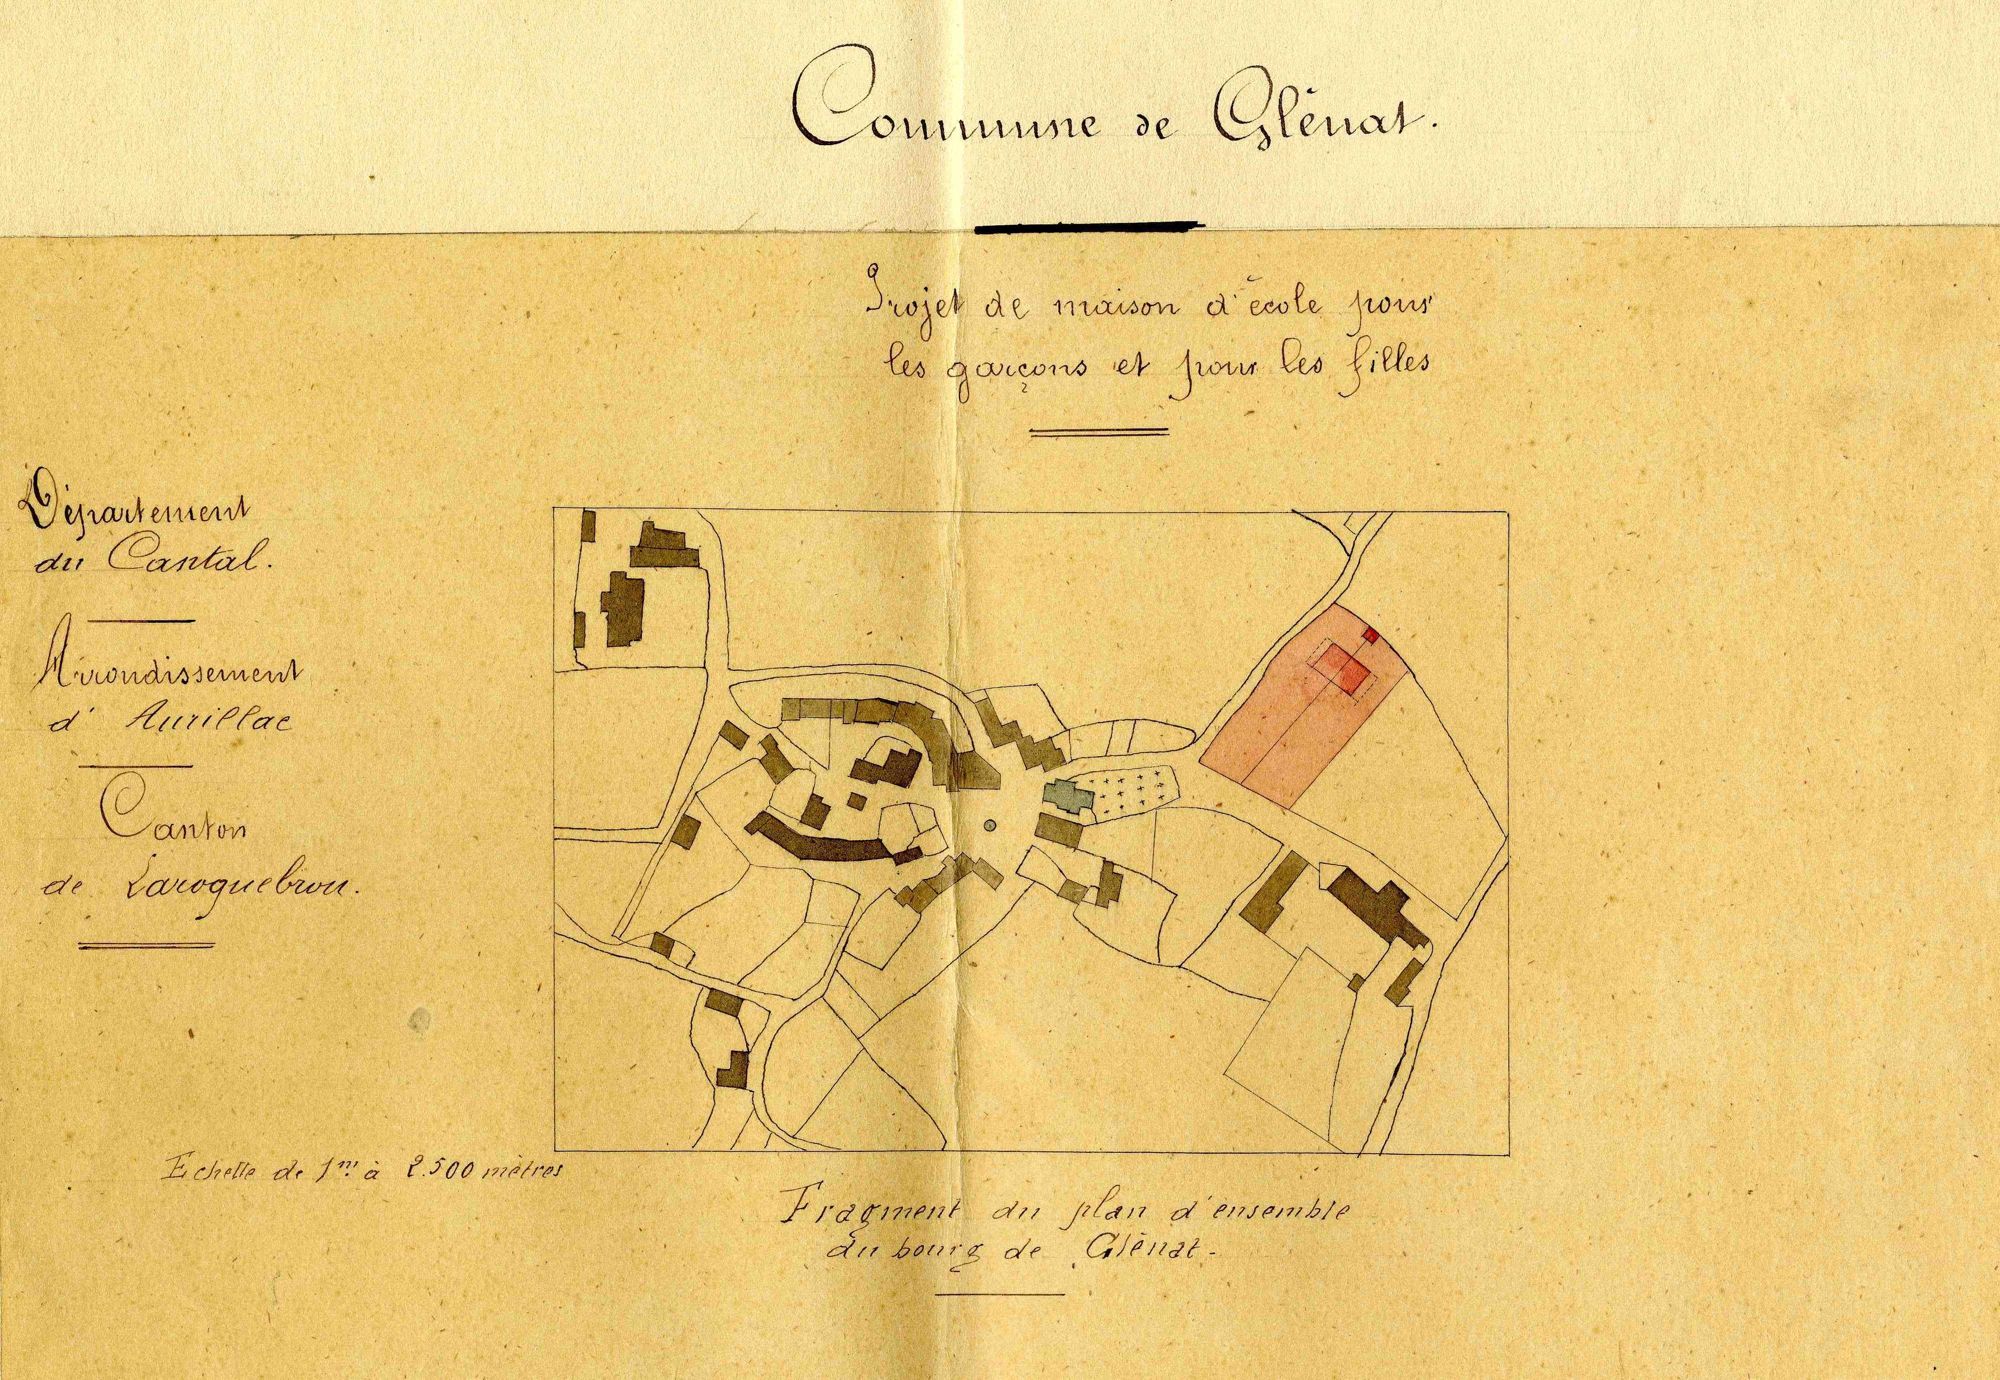 Commune de Glénat.
Projet de maison d'école pour
les garçons et pour les filles
Département
du Cantal.
Arrondissement
d'Aurillac
Canton
de Laroquebrou.
Echelle de 1m. à 2.500 mètres
Fragment du plan d'ensemble
du bourg de Glénat.